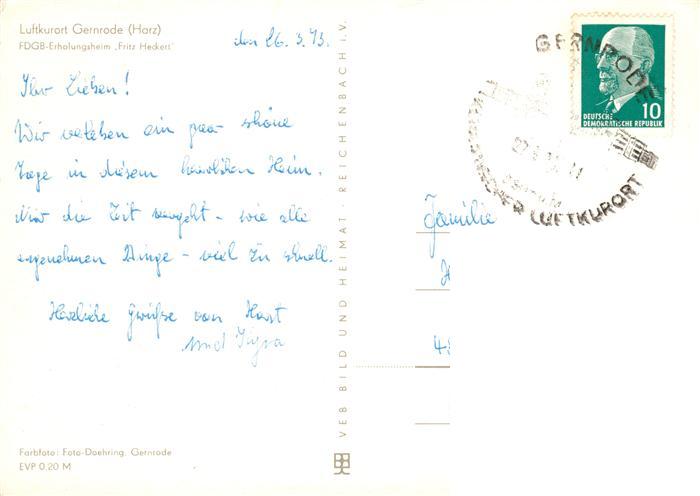 Luftkurort Gernrode (Harz)
FDGB-Erholungsheim „Fritz Heckert"
den 26.3.73.
Ihr Lieben!
Wir verleben ein paar schöne
Tage in diesem herrlichen Heim.
Nur die Zeit vergeht - wie alle
angenehmen Dinge - viel zu schnell.
Herzliche Grüße von Horst
und
Farbfoto: Foto-Doehring, Gernrode
EVP 0,20 M
VEB BILD UND HEIMAT · REICHENBACH i. V.
GERNRODE
LUFTKURORT
10
DEUTSCHE
DEMOKRATISCHE REPUBLIK
Familie
H